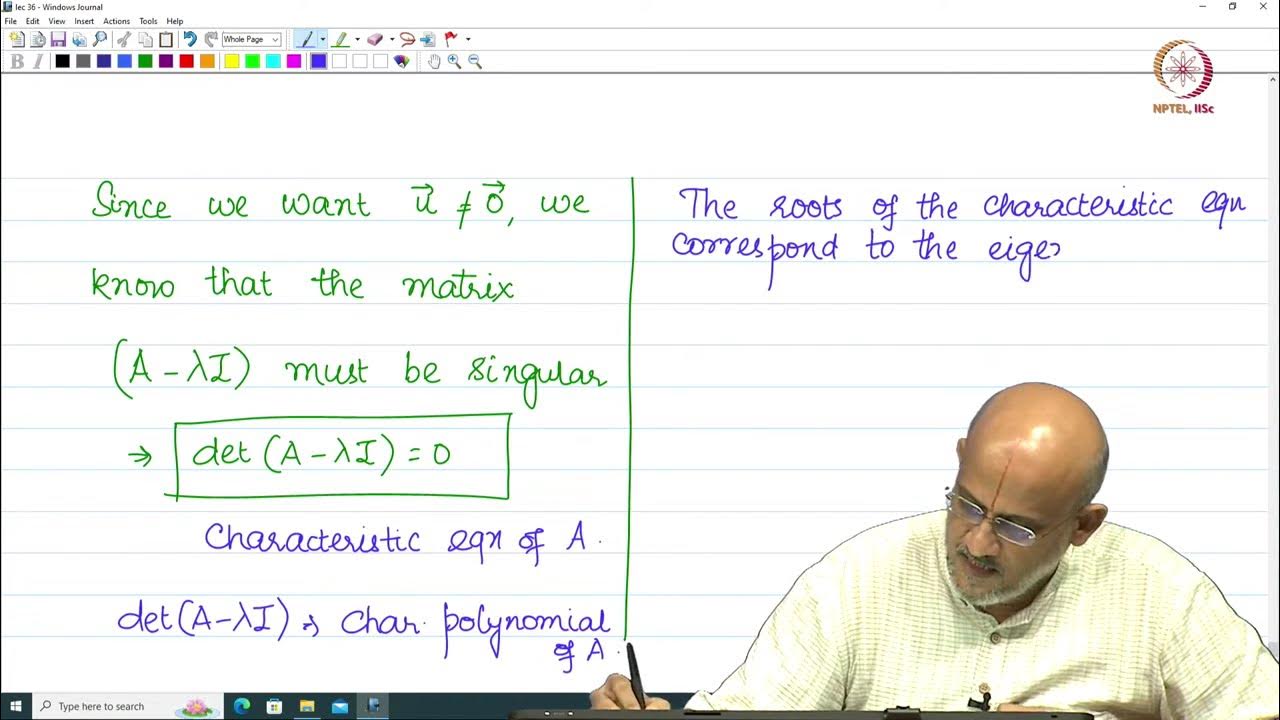 lec 36 - Windows Journal
File Edit View Insert Actions Tools Help
Whole Page
B I
NPTEL, IISc
Since we want u⃗ ≠ 0⃗, we
know that the matrix
(A - λI) must be singular
⇒ det (A - λI) = 0
Characteristic eqn of A.
det(A-λI) → Char. polynomial
of A.
The roots of the characteristic eqn
correspond to the eige
Type here to search